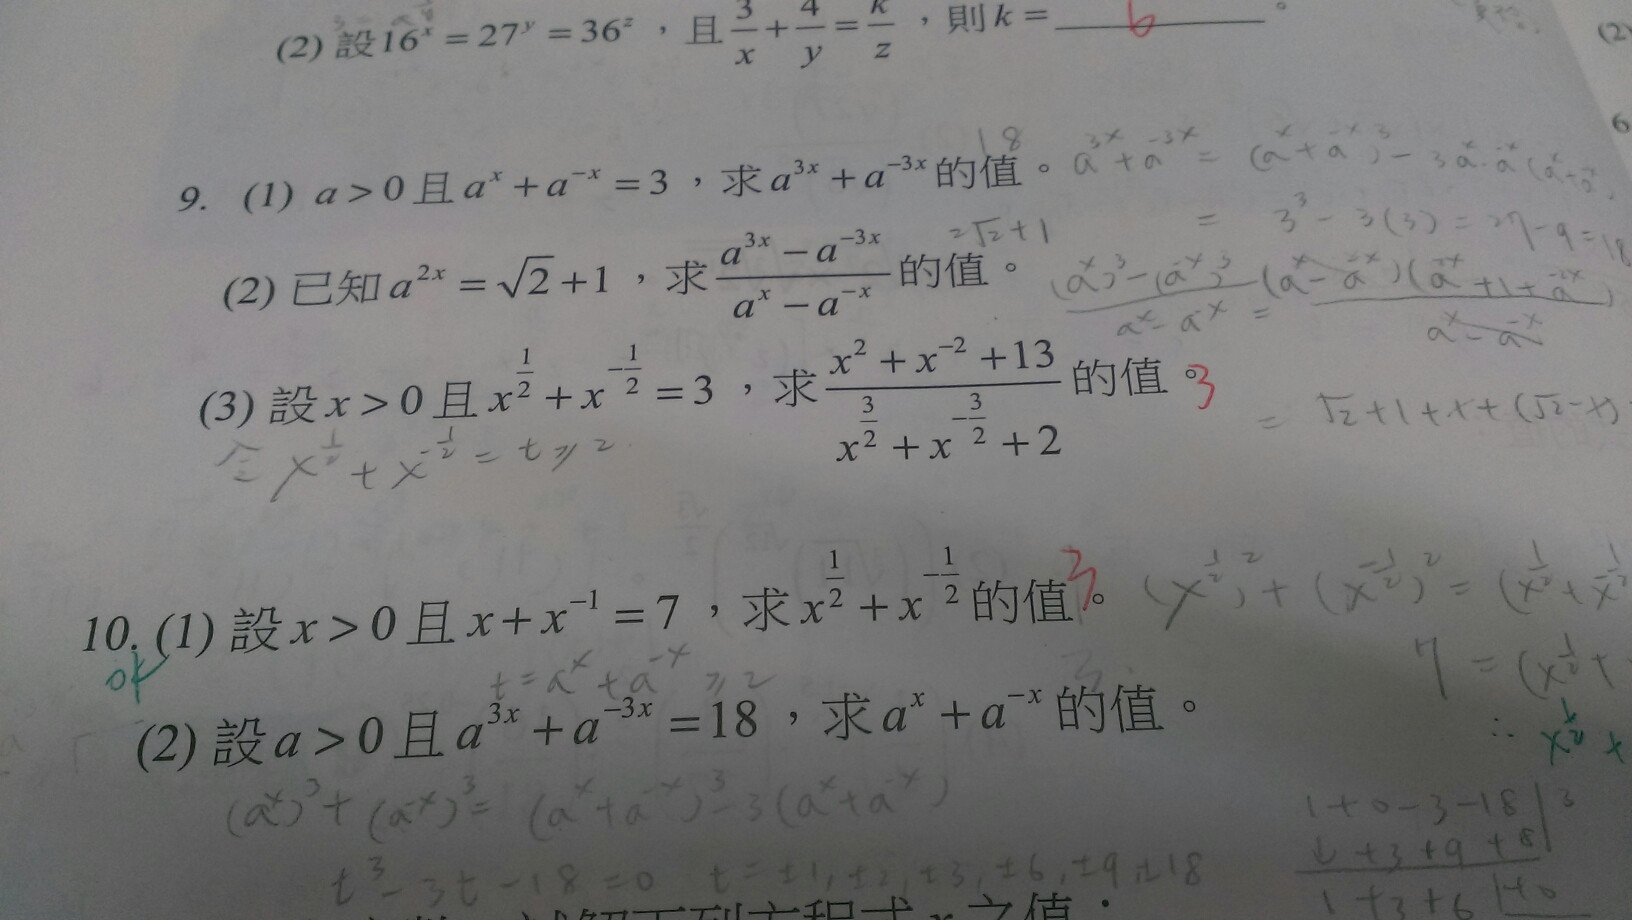 (2) 設 16^x = 27^y = 36^z ，且 3/x + 4/y = k/z ，則 k = 6 。
18
9. (1) a > 0 且 a^x + a^{-x} = 3 ，求 a^{3x} + a^{-3x} 的值。 a^{3x} + a^{-3x} = (a^x + a^{-x})^3 - 3a^x·a^{-x}(a^x + a^{-x}
= 3^3 - 3(3) = 27 - 9 = 18
2√2+1
(2) 已知 a^{2x} = √2 + 1 ，求 (a^{3x} - a^{-3x})/(a^x - a^{-x}) 的值。 ((a^x)^3 - (a^{-x})^3)/(a^x - a^{-x}) = ((a^x - a^{-x})(a^{2x} + 1 + a^{-2x}))/(a^x - a^{-x})
(3) 設 x > 0 且 x^{1/2} + x^{-1/2} = 3 ，求 (x^2 + x^{-2} + 13)/(x^{3/2} + x^{-3/2} + 2) 的值。3
= √2+1+1+(√2-1)
令 x^{1/2} + x^{-1/2} = t ≥ 2
10. (1) 設 x > 0 且 x + x^{-1} = 7 ，求 x^{1/2} + x^{-1/2} 的值。 3 (x^{1/2})^2 + (x^{-1/2})^2 = (x^{1/2} + x^{-1/2}
ok
7 = (x^{1/2} +
t = a^x + a^{-x} ≥ 2
3
(2) 設 a > 0 且 a^{3x} + a^{-3x} = 18 ，求 a^x + a^{-x} 的值。
∴ x^{1/2} +
(a^x)^3 + (a^{-x})^3 = (a^x + a^{-x})^3 - 3(a^x + a^{-x})
1+0-3-18 | 3
↓+3+9+18
t^3 - 3t - 18 = 0 t = ±1, ±2, ±3, ±6, ±9, ±18
1+3+6 | +0
下列方程式 x 之值：
(2)
6